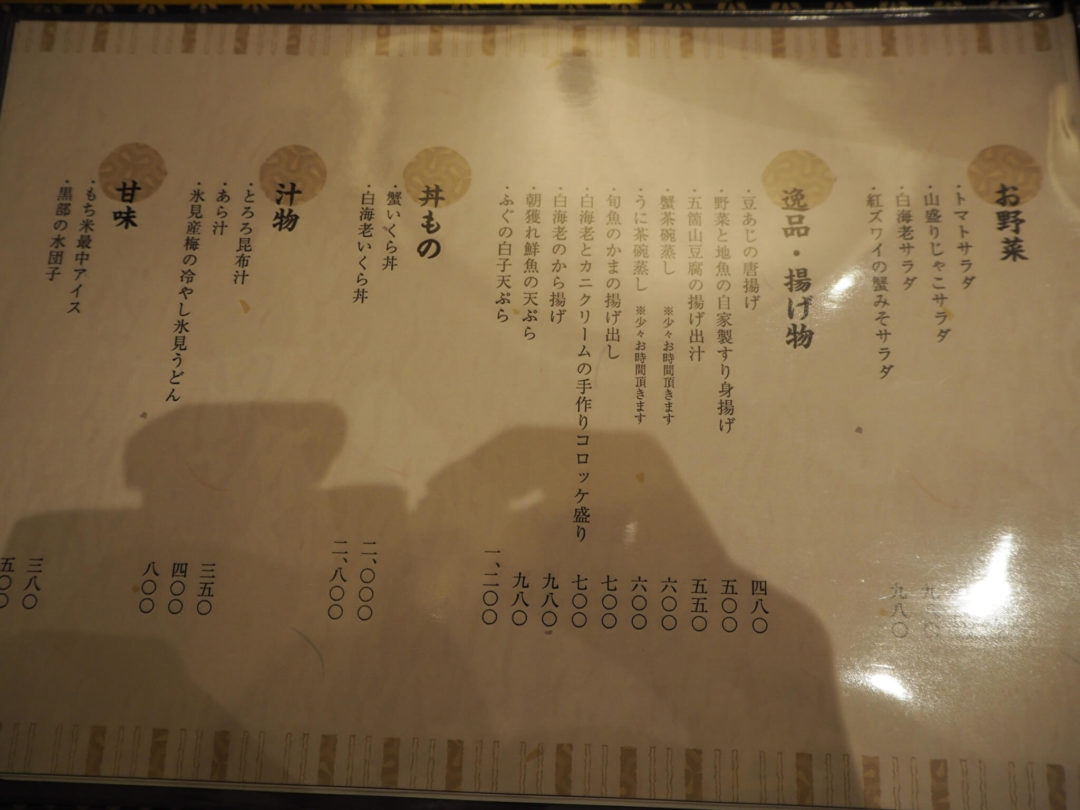 お野菜
・トマトサラダ
・山盛りじゃこサラダ
・白海老サラダ
・紅ズワイの蟹みそサラダ 九八〇
逸品・揚げ物
・豆あじの唐揚げ 四八〇
・野菜と地魚の自家製すり身揚げ 五〇〇
・五箇山豆腐の揚げ出汁 五五〇
・蟹茶碗蒸し ※少々お時間頂きます 六〇〇
・うに茶碗蒸し ※少々お時間頂きます 六〇〇
・旬魚のかまの揚げ出し 七〇〇
・白海老とカニクリームの手作りコロッケ盛り 七〇〇
・白海老のから揚げ 九八〇
・朝獲れ鮮魚の天ぷら 九八〇
・ふぐの白子天ぷら 一、二〇〇
丼もの
・蟹いくら丼 二、〇〇〇
・白海老いくら丼 二、八〇〇
汁物
・とろろ昆布汁 三五〇
・あら汁 四〇〇
・氷見産梅の冷やし氷見うどん 八〇〇
甘味
・もち米最中アイス 三八〇
・黒部の水団子 五〇〇